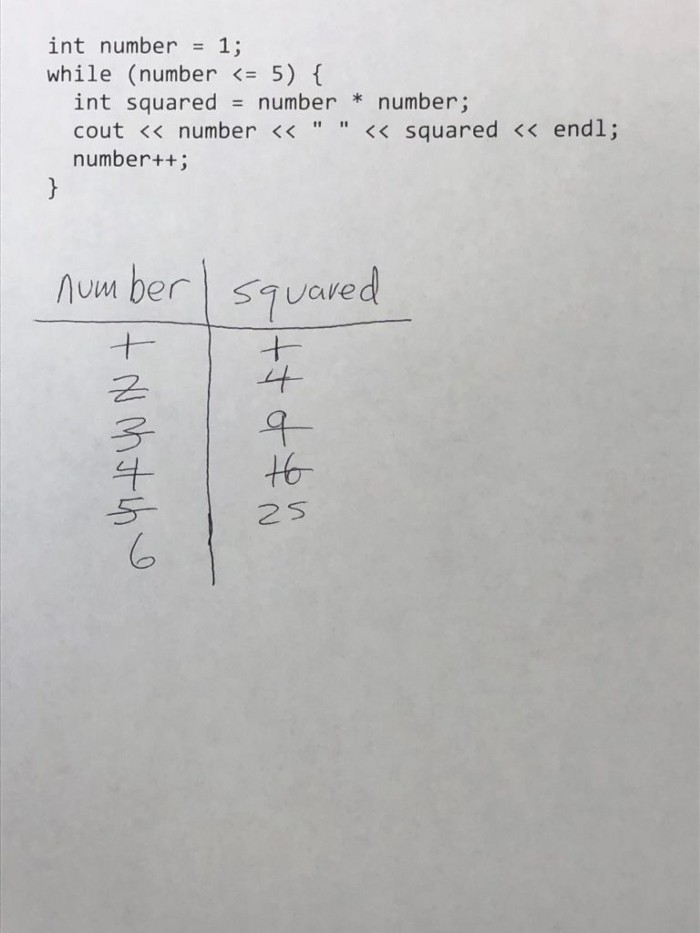 int number = 1;
while (number <= 5) {
  int squared = number * number;
  cout << number << " " << squared << endl;
  number++;
}
number squared
1 1
2 4
3 9
4 16
5 25
6